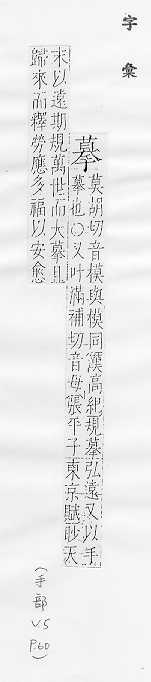 字彙
摹 莫胡切音模與模同漢高紀規摹弘遠又以手
摹也○又叶滿補切音母張平子東京賦眇天
末以遠期規萬世而大摹且
歸來而釋勞膺多福以安悆
(手部 V5 P.60)